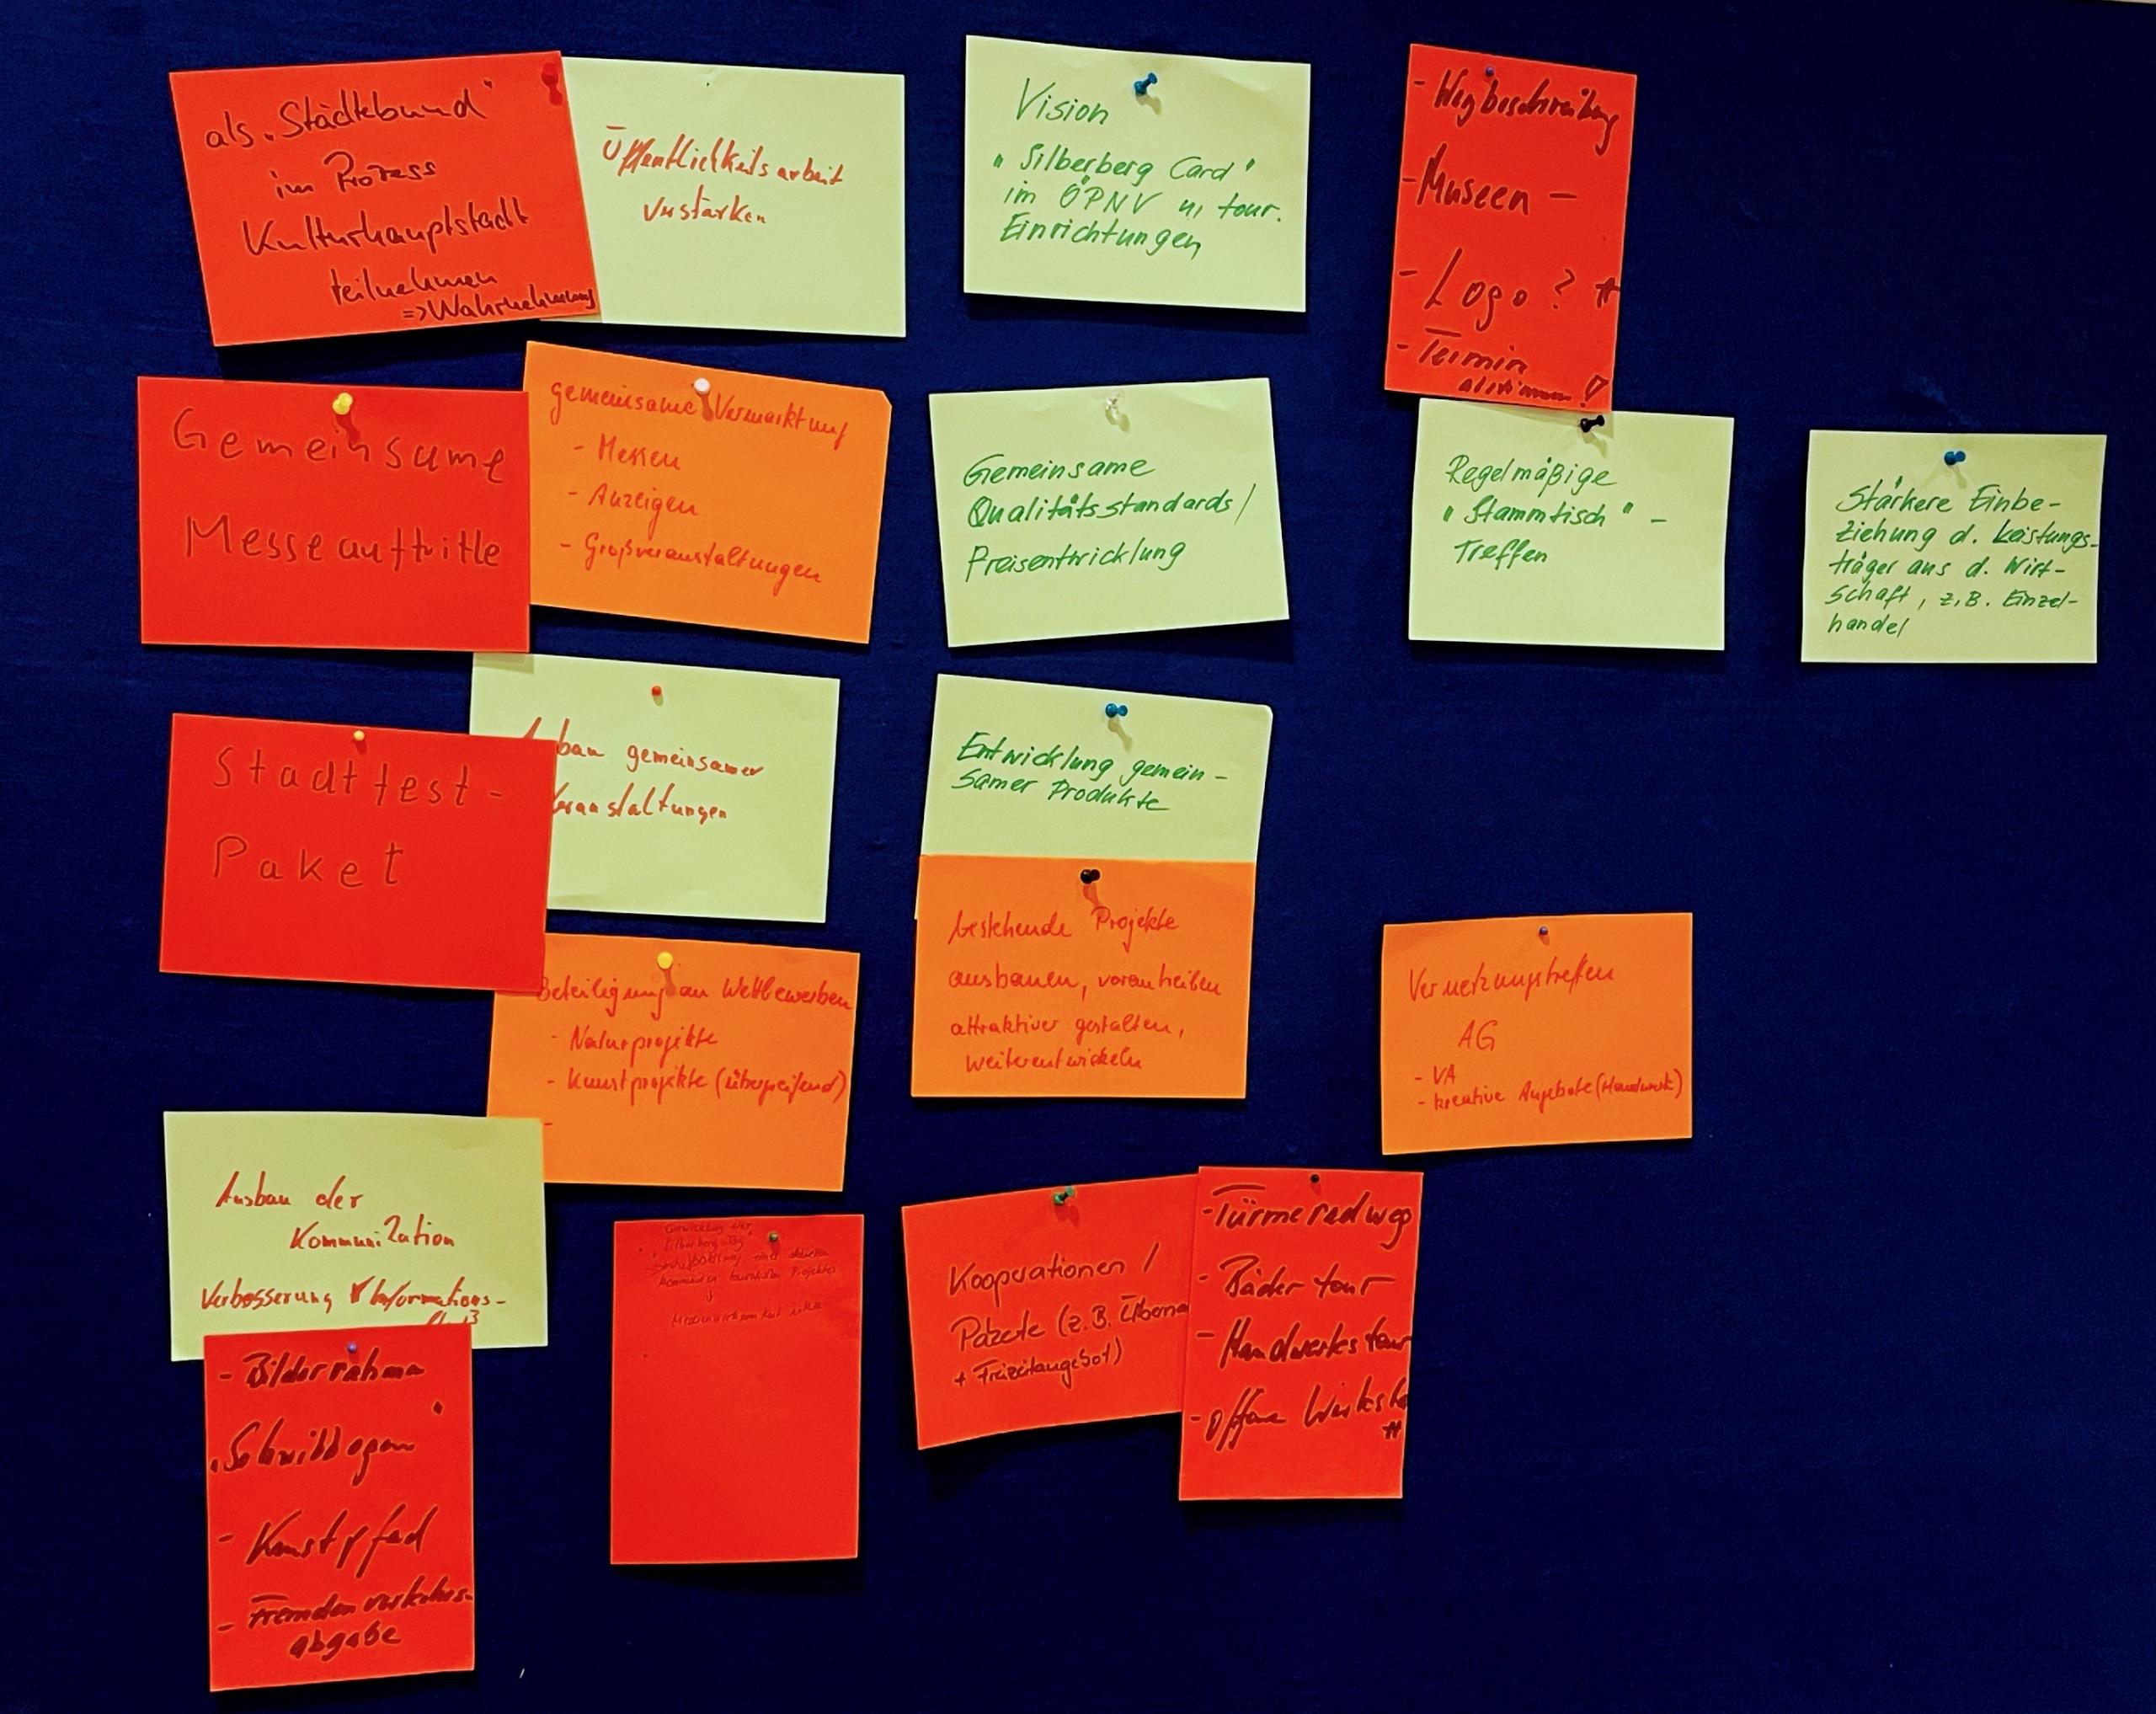 als „Städtebund"
im Prozess
Kulturhauptstadt
teilnehmen
=> Wahrnehmung
Öffentlichkeitsarbeit
verstärken
Vision
"Silberberg Card"
im ÖPNV u, tour.
Einrichtungen
- Wegbeschreibung
- Museen -
- Logo?
- Termin
abstimmen!
Gemeinsame
Messeauftritte
gemeinsame Vermarktung
- Messen
- Anzeigen
- Großveranstaltungen
Gemeinsame
Qualitätsstandards/
Preisentwicklung
Regelmäßige
"Stammtisch" -
Treffen
Stärkere Einbe-
ziehung d. Leistungs-
träger aus d. Wirt-
schaft, z.B. Einzel-
handel
Stadtfest-
Paket
gemeinsamer
Veranstaltungen
Entwicklung gemein-
samer Produkte
bestehende Projekte
ausbauen, vorantreiben
attraktiver gestalten,
weiterentwickeln
Beteiligung an Wettbewerben
- Naturprojekte
- Kunstprojekte (übergreifend)
-
Vernetzungstreffen
AG
- VA
- kreative Angebote (Handwerk)
Ausbau der
Kommunikation
Verbesserung Informations-
- Bilderrahmen
"Schwibbogen"
- Kunstpfad
- Fremdenverkehrs-
abgabe
Kooperationen /
Pakete (z.B. Überna
+ Freizeitangebot)
- Türmeradweg
- Bädertour
- Handwerkstour
- Offene